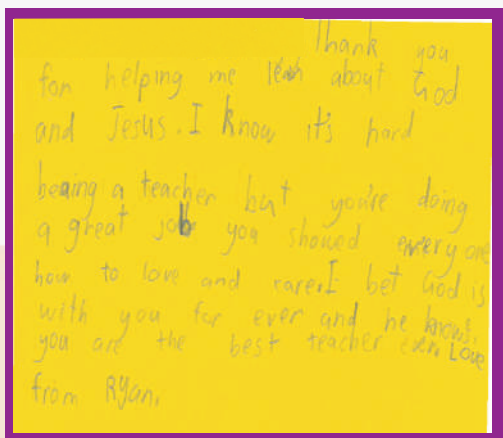 Thank you
for helping me leah about God
and Jesus. I know it's hard
beaing a teacher but you're doing
a great job you showed every one
how to love and care. I bet God is
with you for ever and he knows,
you are the best teacher ever. Love
from Ryan.